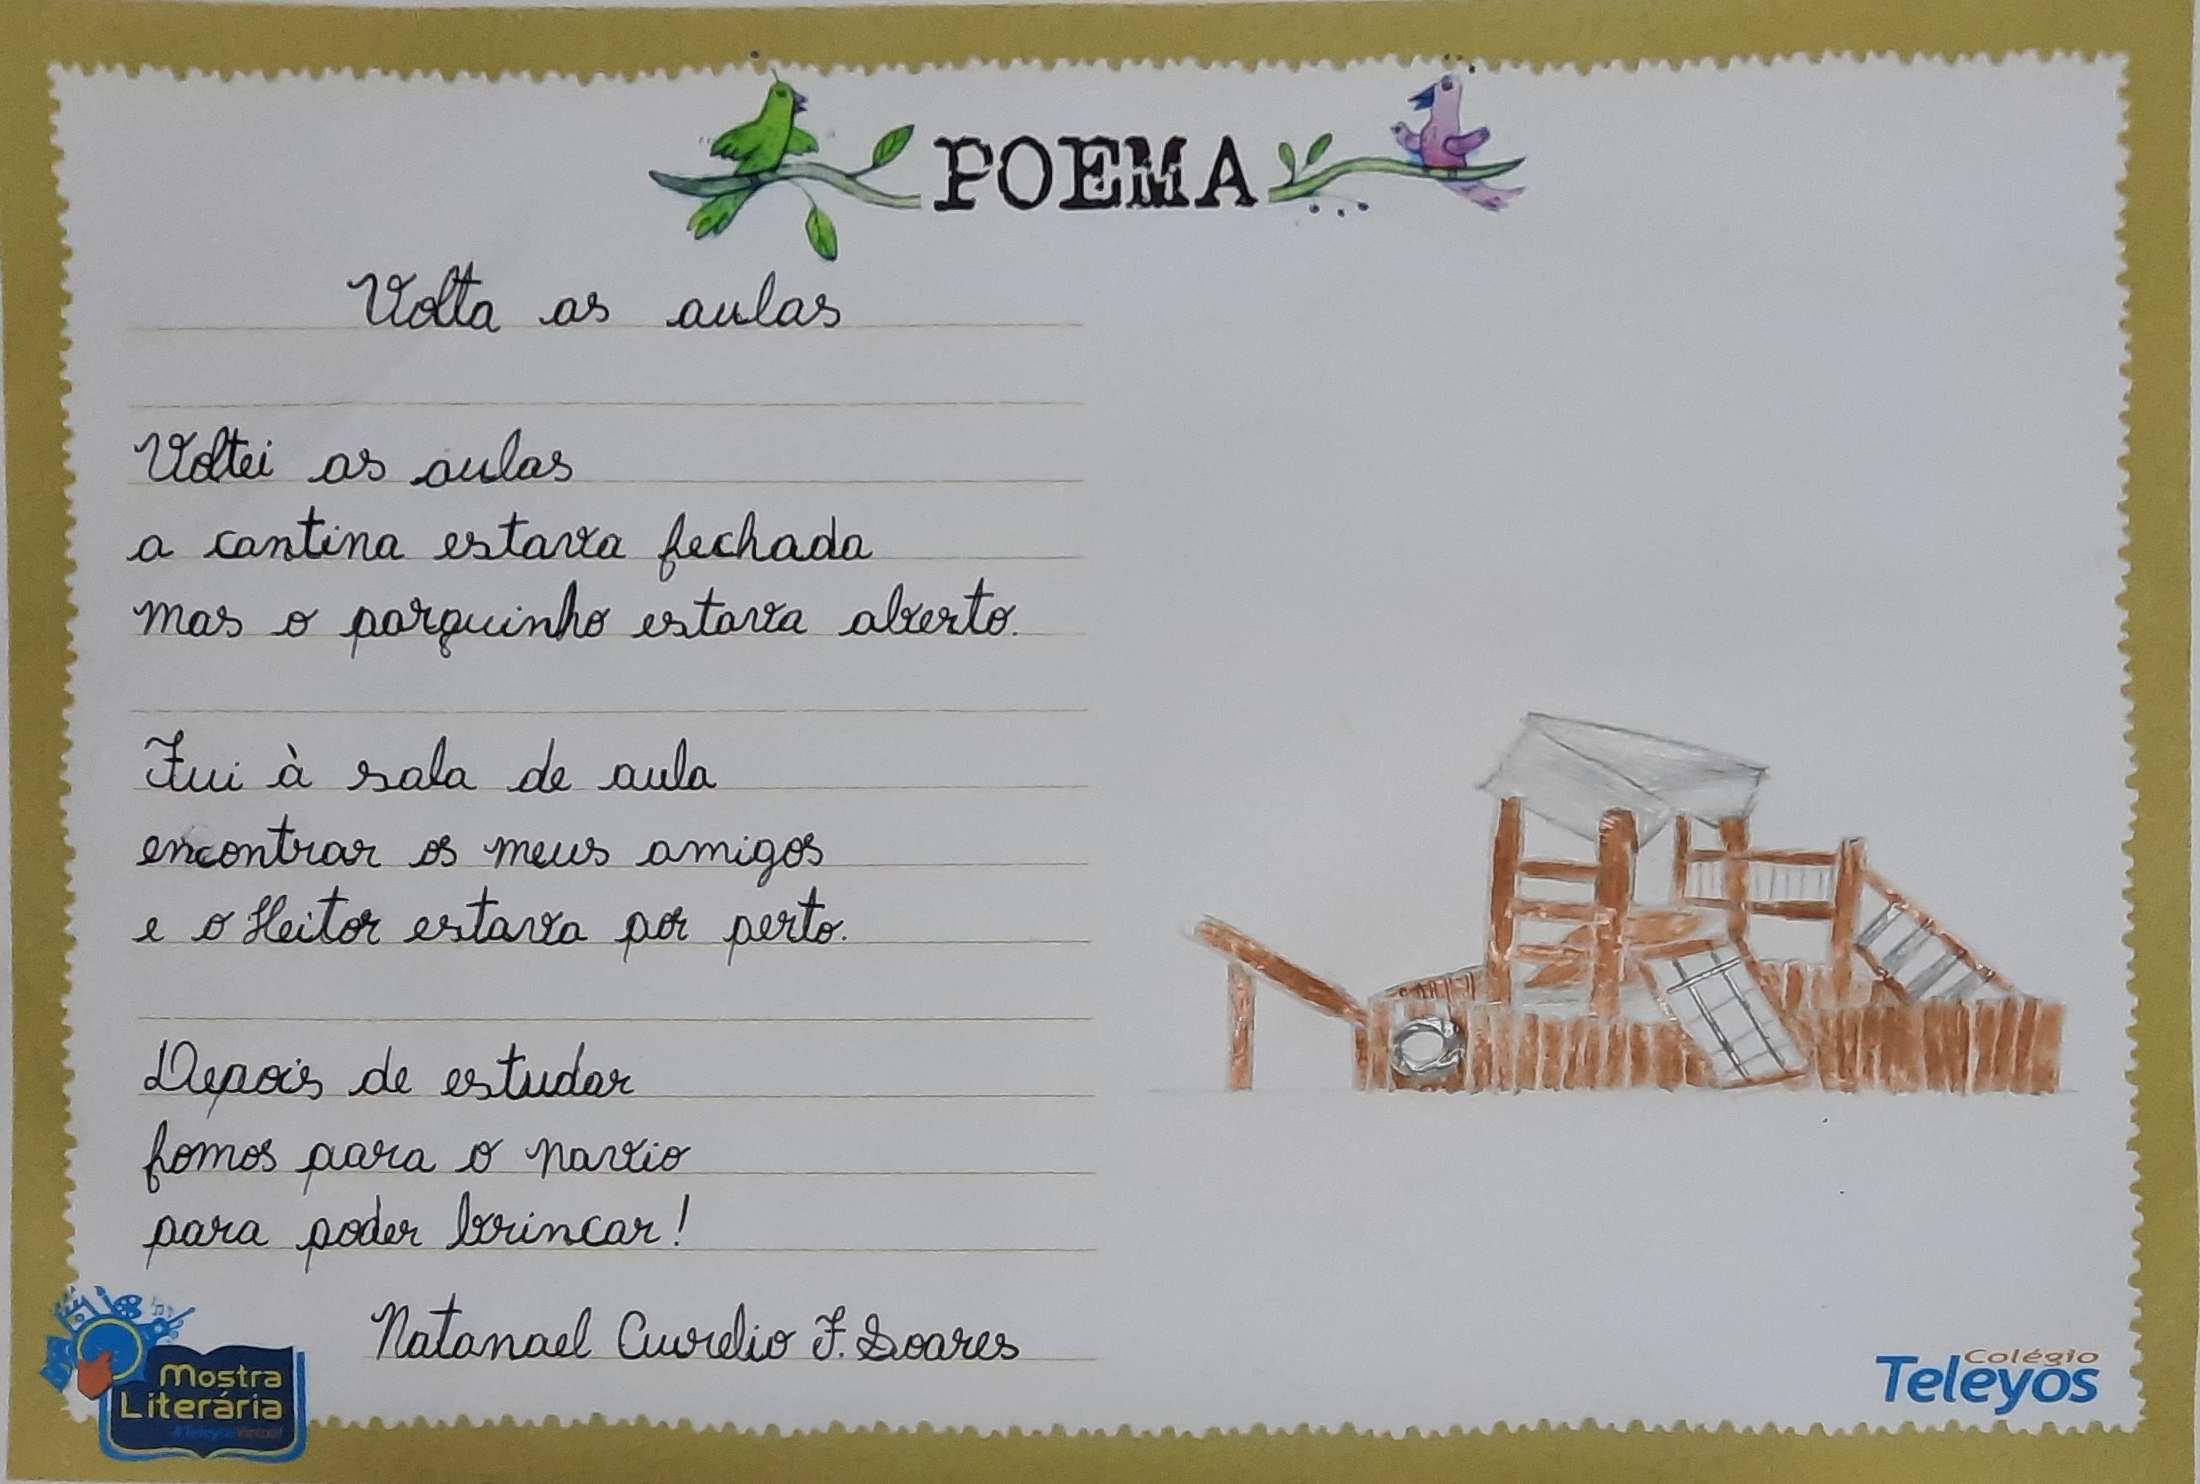 POEMA
Volta as aulas
Voltei as aulas
a cantina estava fechada
mas o parquinho estava aberto.
Fui à sala de aula
encontrar os meus amigos
e o Heitor estava por perto.
Depois de estudar
fomos para o navio
para poder brincar!
Natanael Aurelio F. Soares
Mostra
Literária
#TeleyosVirtual
Colégio
Teleyos